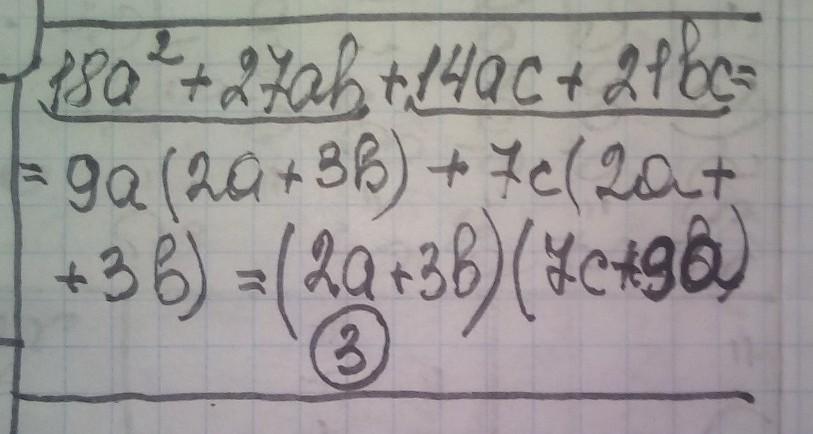 18a² + 27ab + 14ac + 21bc =
= 9a(2a + 3b) + 7c(2a +
+ 3b) = (2a + 3b)(7c + 9a)
3